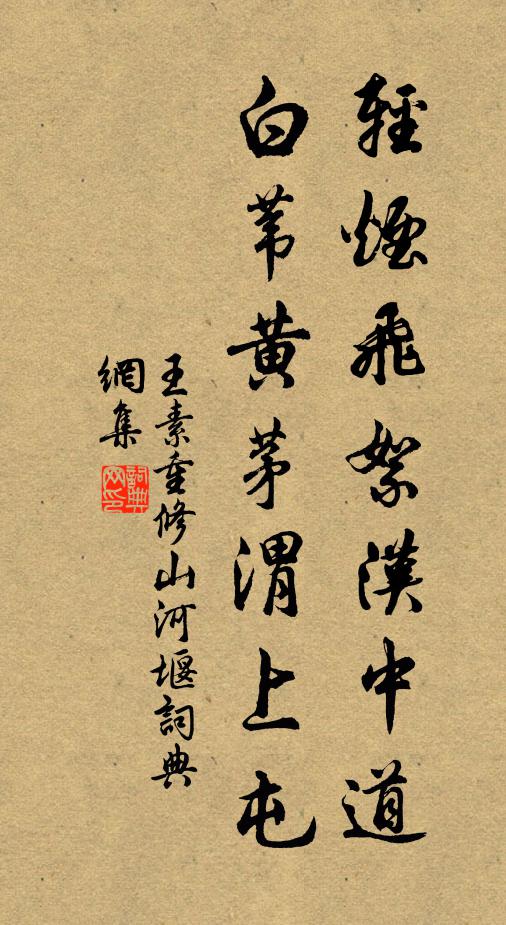 輕煙飛絮漢中道
白葦黃茅渭上屯
王素重修山河堰詞典
網集
詞典網印